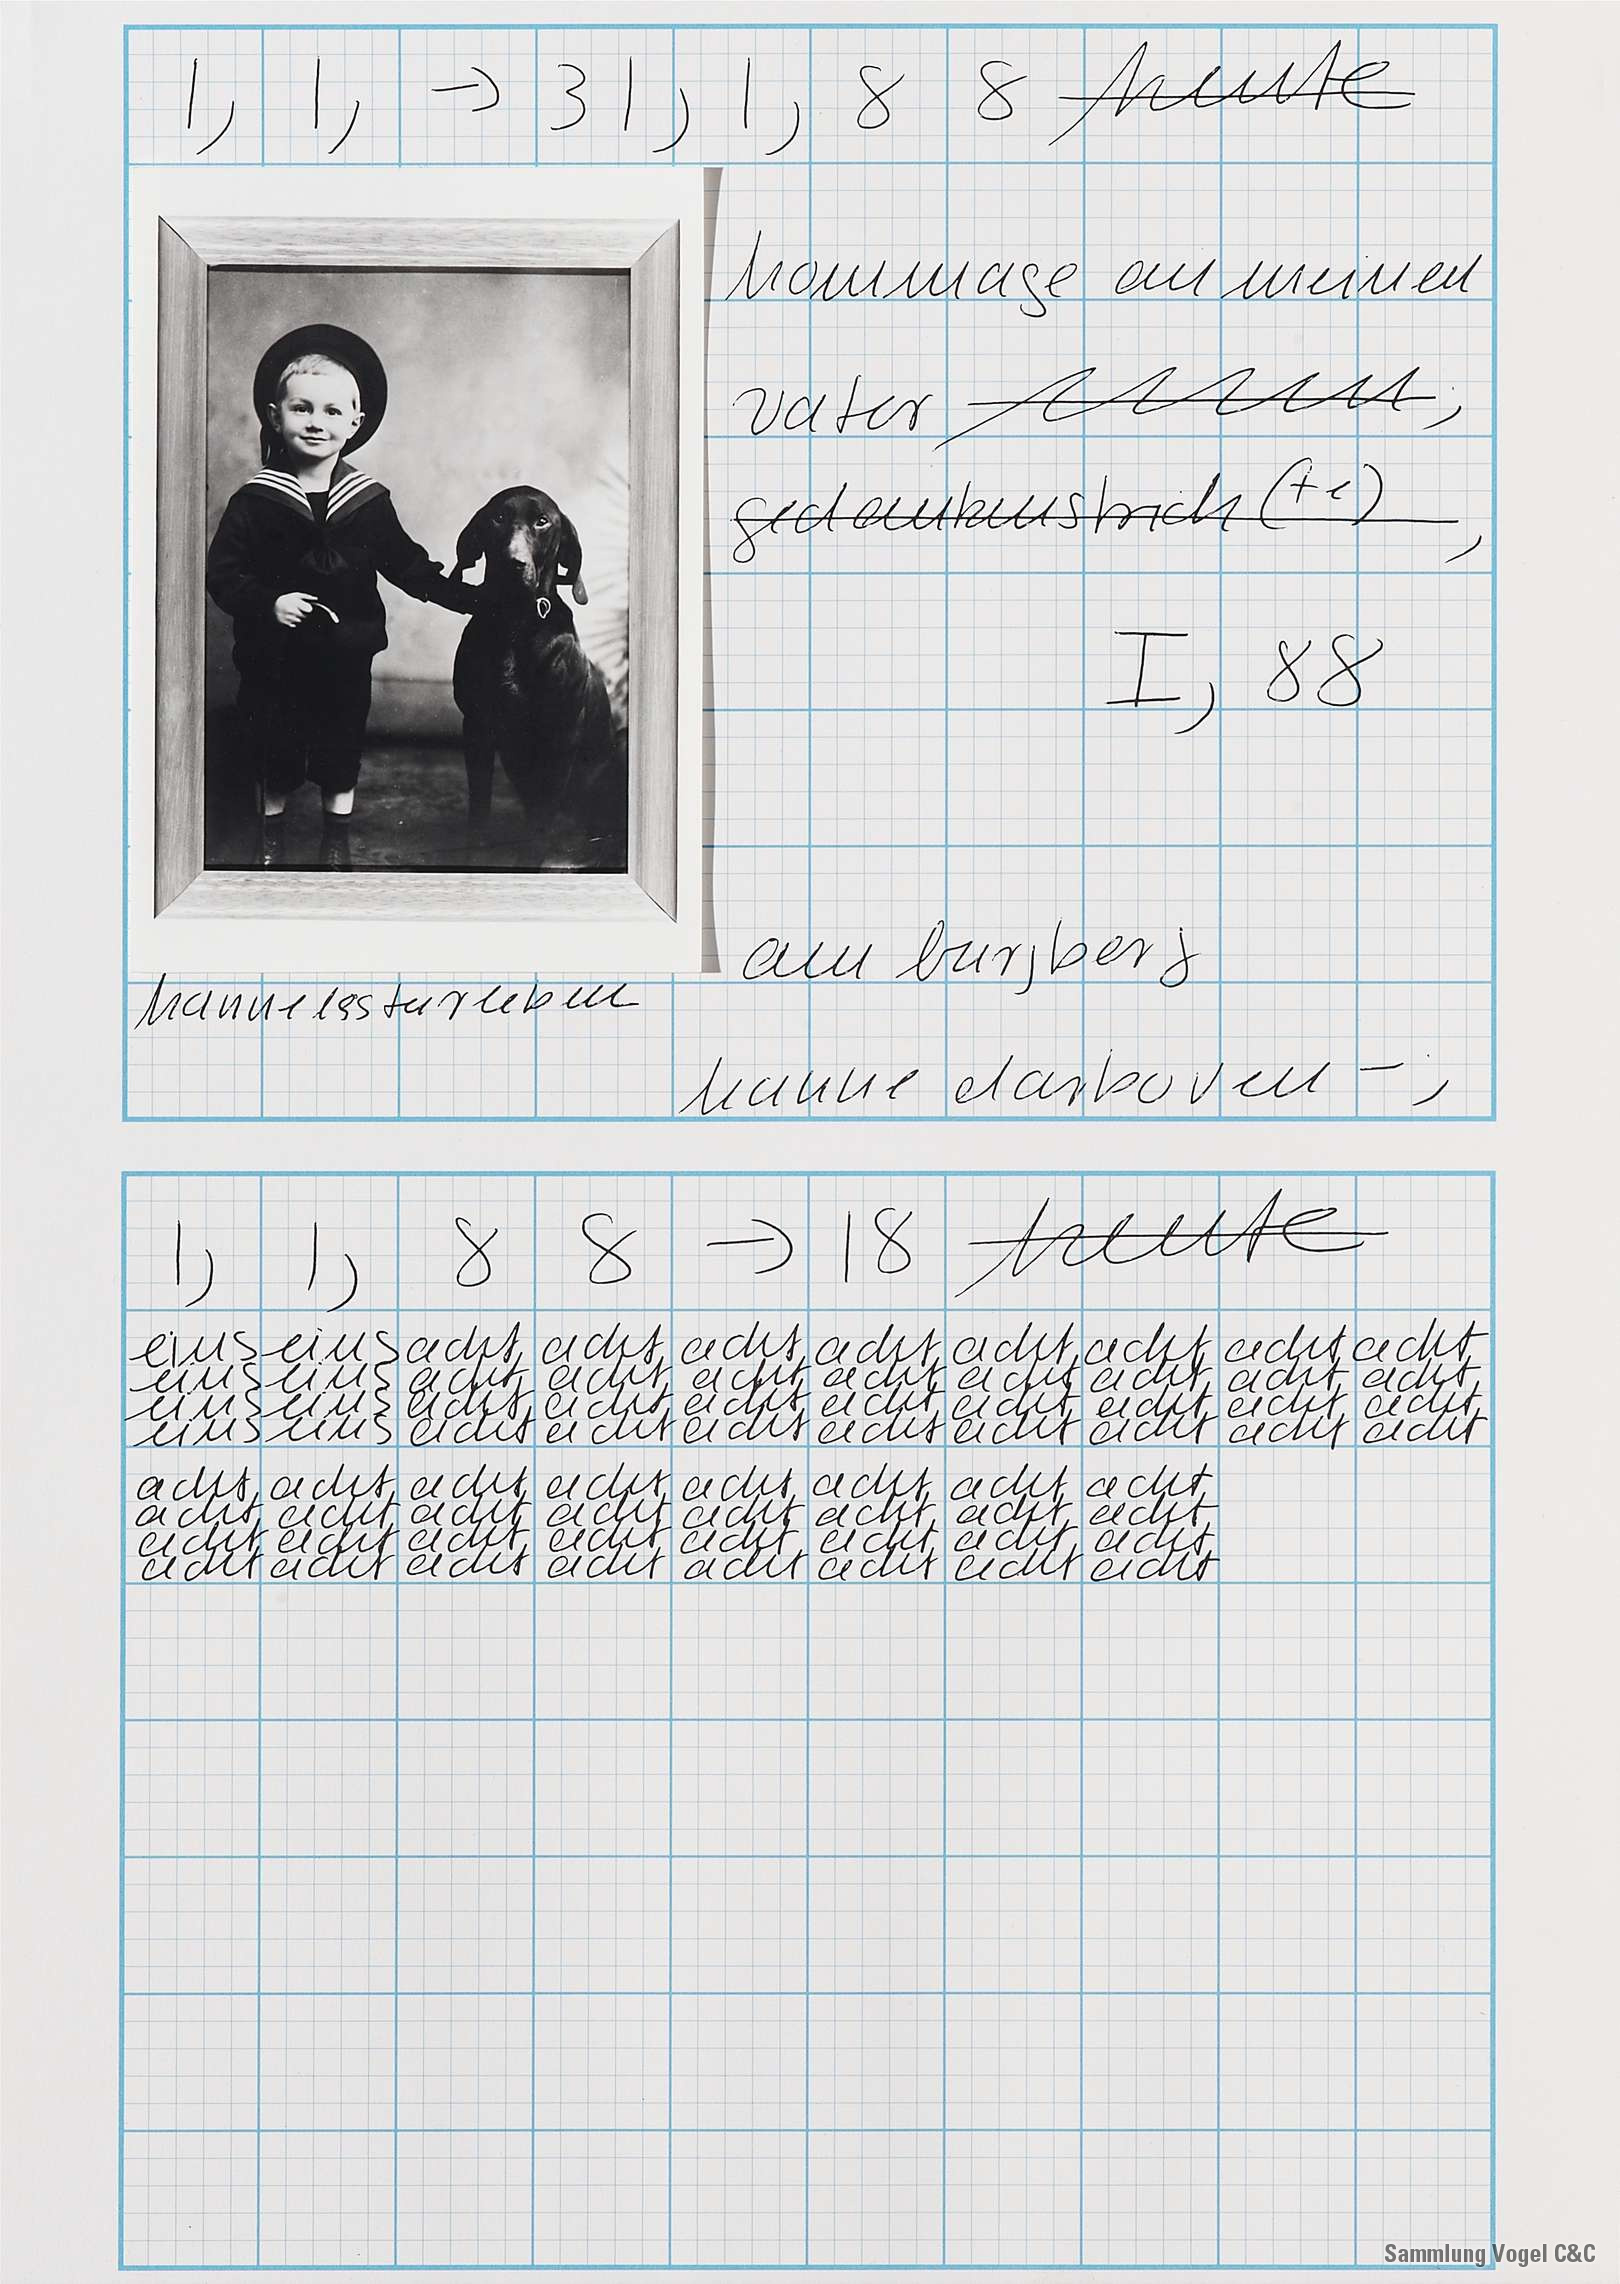 1, 1, → 31, 1, 8 8 heute
hommage an meinen
vater ;
gedankenstrich (+e) ,
I, 88
am burgberg
hanne darboven – ;
1, 1, 8 8 → 18 heute
eins eins acht, acht, acht, acht, acht, acht, acht, acht,
eins eins acht, acht, acht, acht, acht, acht, acht, acht,
eins eins acht, acht, acht, acht, acht, acht, acht, acht,
eins eins acht acht acht acht acht acht acht acht
acht, acht, acht, acht, acht, acht, acht, acht,
acht, acht, acht, acht, acht, acht, acht, acht,
acht, acht, acht, acht, acht, acht, acht, acht,
acht acht acht acht acht acht acht acht
Sammlung Vogel C&C